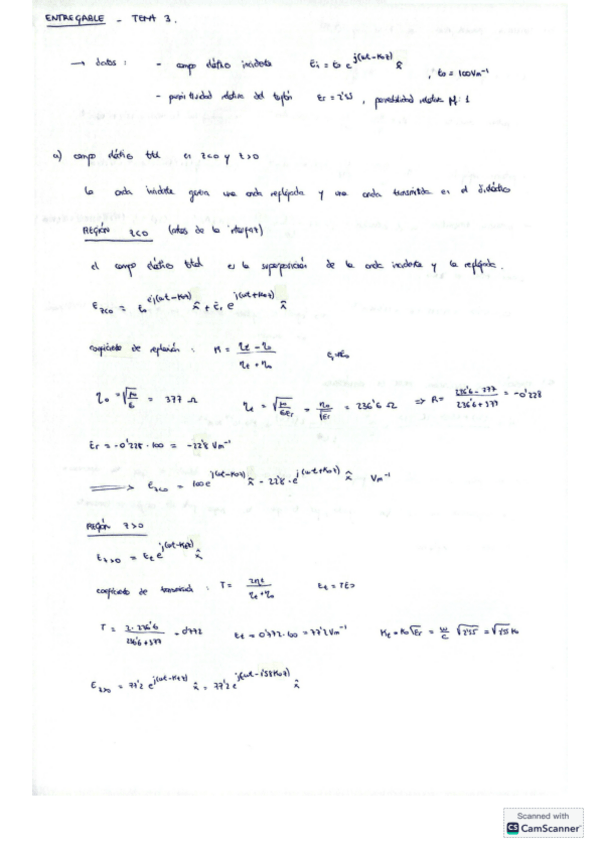 ENTREGABLE - TEMA 3.
→ datos: - campo eléctrico incidente Ei = E0 e^{j(ωt-K0z)} x̂ , E0 = 100 Vm⁻¹
- permitividad relativa del teflón Er = 2'55, permeabilidad relativa M 1
a) campo eléctrico total en z<0 y z>0
la onda incidente genera una onda reflejada y una onda transmitida en el dieléctrico
REGIÓN z<0 (antes de la interfaz)
el campo eléctrico total es la superposición de la onda incidente y la reflejada.
E_{z<0} = E0 e^{j(ωt-K0z)} x̂ + Er e^{j(ωt+K0z)} x̂
coeficiente de reflexión: R = (η_t - η_0)/(η_t + η_0)
η_0 = √(μ/ε) = 377 Ω η_t = √(μ/(εEr)) = η_0/√Er = 236'6 Ω ⇒ R = (236'6 - 377)/(236'6 + 377) = -0'228
Er = -0'228 · 100 = -22'8 Vm⁻¹
⟹ E_{z<0} = 100 e^{j(ωt-K0z)} x̂ - 22'8 · e^{j(ωt+K0z)} x̂ Vm⁻¹
REGIÓN z>0
E_{z>0} = Et e^{j(ωt-Ktz)} x̂
coeficiente de transmisión: T = 2η_t/(η_t + η_0) Et = TE0
T = (2 · 236'6)/(236'6 + 377) = 0'772 Et = 0'772 · E0 = 77'2 Vm⁻¹ Kt = K0√Er = ω/c √2'55 = √2'55 K0
E_{z>0} = 77'2 e^{j(ωt-Ktz)} x̂ = 77'2 e^{j(ωt-1'58K0z)} x̂
Scanned with
CS CamScanner